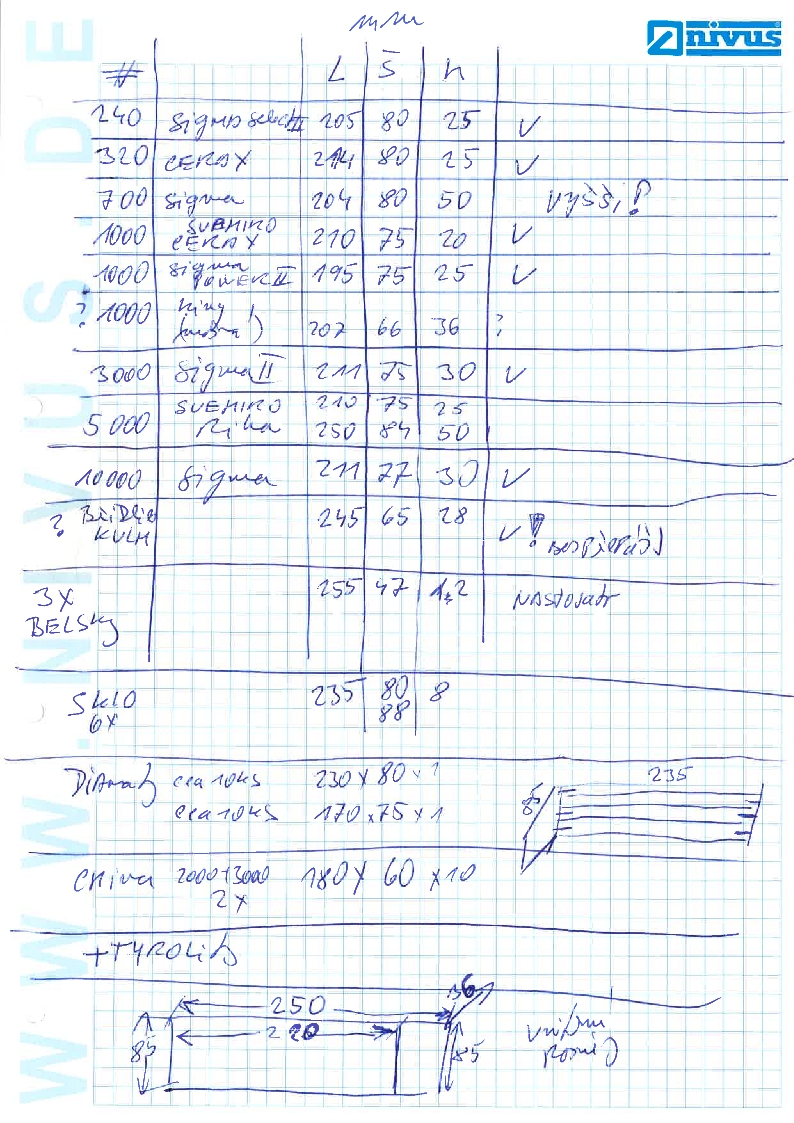 mm
nivus
WWW.NIVUS.DE
# L Š h
240 Sigma Select II 205 80 25 ✓
320 CERAX 214 80 25 ✓
700 Sigma 204 80 50 vyšší!
1000 SUEHIRO CERAX 210 75 20 ✓
1000 Sigma POWER II 195 75 25 ✓
? 1000 King
207 66 36 ?
3000 Sigma II 211 75 30 ✓
SUEHIRO 210 75 25
5000 Rika 250 84 50
10000 Sigma 211 77 30 ✓
? Břidlice 245 65 28
KULM ✓ !
3x 255 47 1,2
BELSKÝ
SKLO 235 80 8
6x 88
Diamanty 230 x 80 x 1 235
170 x 75 x 1 85
China 2000+3000 180 x 60 x 10
2x
+TYROLIT
36
250
220
85 85